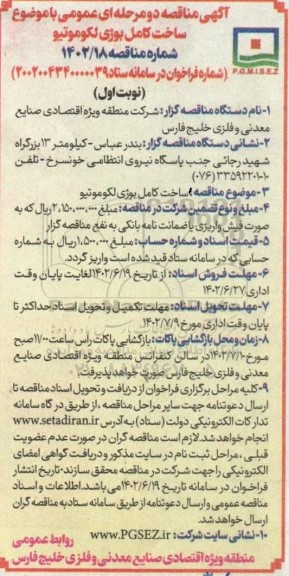 آگهی مناقصه دو مرحله ای عمومی با موضوع
ساخت کامل بوژی لکوموتیو
شماره مناقصه ۱۴۰۲/۱۸
(شماره فراخوان در سامانه ستاد ۲۰۰۲۰۰۴۳۴۰۰۰۰۰۳۹)
(نوبت اول)
P.G.M.I.S.E.Z
۱-نام دستگاه مناقصه گزار: شرکت منطقه ویژه اقتصادی صنایع
معدنی و فلزی خلیج فارس
۲-نشانی دستگاه مناقصه گزار: بندرعباس-کیلومتر ۱۳ بزرگراه
شهید رجائی جنب پاسگاه نیروی انتظامی خونسرخ-تلفن
(۰۷۶)
۳-موضوع مناقصه: ساخت کامل بوژی لکوموتیو
۴-مبلغ و نوع تضمین شرکت در مناقصه: مبلغ ۲،۱۵۰،۰۰۰،۰۰۰ ریال که به
صورت فیش واریزی یا ضمانت نامه بانکی به نفع مناقصه گزار
۵-قیمت اسناد و شماره حساب: مبلغ ۱،۵۰۰،۰۰۰ ریال به شماره
حسابی که در سامانه ستاد قید شده است واریز گردد.
۶-مهلت فروش اسناد: از تاریخ ۱۴۰۲/۶/۱۹ لغایت پایان وقت
اداری ۱۴۰۲/۶/۲۷
۷-مهلت تحویل اسناد: مهلت تکمیل و تحویل اسناد حداکثر تا
پایان وقت اداری مورخ ۱۴۰۲/۷/۹
۸-زمان و محل بازگشایی پاکات: بازگشایی پاکات رأس ساعت ۱۱:۰۰ صبح
مورخ ۱۴۰۲/۷/۱۰ در سالن کنفرانس منطقه ویژه اقتصادی صنایع
معدنی و فلزی خلیج فارس صورت خواهد پذیرفت.
۹-کلیه مراحل برگزاری فراخوان از دریافت و تحویل اسناد مناقصه تا
ارسال دعوتنامه جهت سایر مراحل مناقصه، از طریق درگاه سامانه
تدارکات الکترونیکی دولت (ستاد) به آدرس www.setadiran.ir
انجام خواهد شد. لازم است مناقصه گران در صورت عدم عضویت
قبلی، مراحل ثبت نام در سایت مذکور و دریافت گواهی امضای
الکترونیکی را جهت شرکت در مناقصه محقق سازند. تاریخ انتشار
فراخوان در سامانه تاریخ ۱۴۰۲/۶/۱۹ می باشد. اطلاعات و اسناد
مناقصه عمومی و ارسال دعوتنامه از طریق سامانه ستاد به مناقصه گران
ارسال خواهد شد.
۱۰-نشانی سایت شرکت: www.PGSEZ.ir
روابط عمومی
منطقه ویژه اقتصادی صنایع معدنی و فلزی خلیج فارس